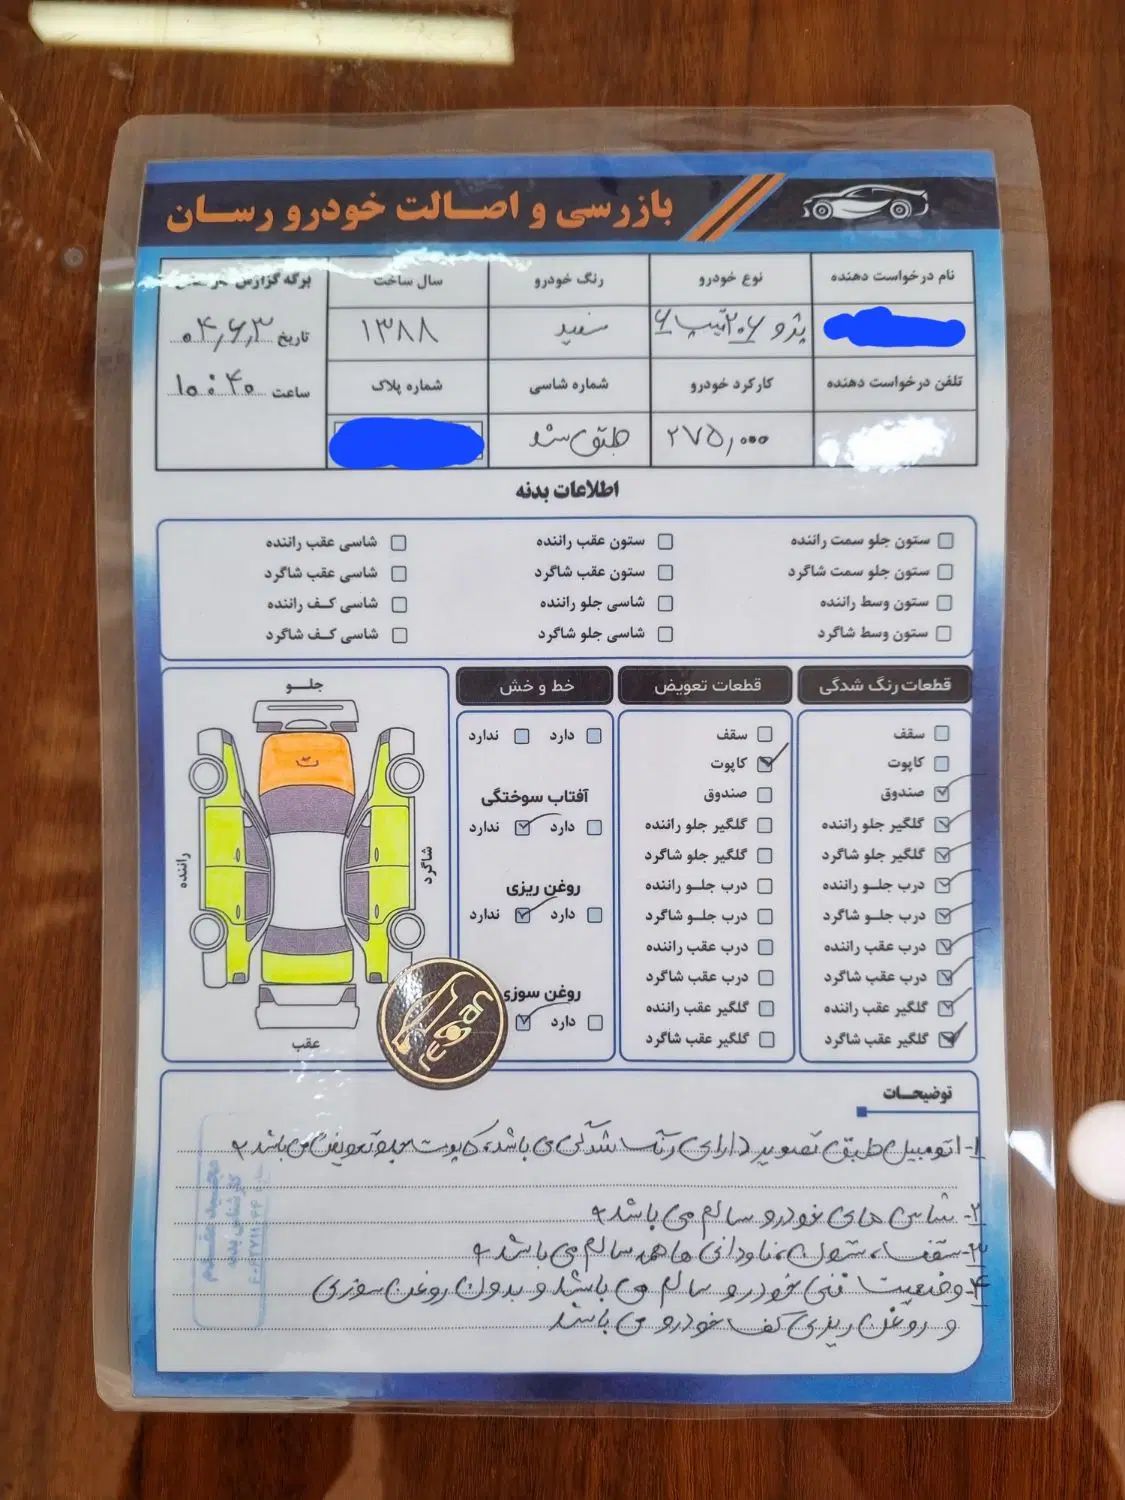 بازرسی و اصالت خودرو رسان
نام درخواست دهنده
نوع خودرو
رنگ خودرو
سال ساخت
برگه گزارش
پژو ۲۰۶ تیپ ۶
سفید
۱۳۸۸
تاریخ ۰۴,۶,۳
تلفن درخواست دهنده
کارکرد خودرو
شماره شاسی
شماره پلاک
ساعت ۱۰:۴۰
۲۷۵,۰۰۰
طبق سند
اطلاعات بدنه
ستون جلو سمت راننده
ستون عقب راننده
شاسی عقب راننده
ستون جلو سمت شاگرد
ستون عقب شاگرد
شاسی عقب شاگرد
ستون وسط راننده
شاسی جلو راننده
شاسی کف راننده
ستون وسط شاگرد
شاسی جلو شاگرد
شاسی کف شاگرد
قطعات رنگ شدگی
سقف
کاپوت
صندوق
گلگیر جلو راننده
گلگیر جلو شاگرد
درب جلو راننده
درب جلو شاگرد
درب عقب راننده
درب عقب شاگرد
گلگیر عقب راننده
گلگیر عقب شاگرد
قطعات تعویض
سقف
کاپوت
صندوق
گلگیر جلو راننده
گلگیر جلو شاگرد
درب جلو راننده
درب جلو شاگرد
درب عقب راننده
درب عقب شاگرد
گلگیر عقب راننده
گلگیر عقب شاگرد
خط و خش
دارد ندارد
آفتاب سوختگی
دارد ندارد
روغن ریزی
دارد ندارد
روغن سوزی
دارد
جلو
ت
راننده
شاگرد
عقب
resan
توضیحات
۱- اتومبیل طبق تصویر دارای رنگ شدگی می باشد، کاپوت جلو تعویض می باشد
۲- شاسی های خودرو سالم می باشد
۳- سقف، ستون، ناودانی ها همه سالم می باشد
۴- وضعیت فنی خودرو سالم می باشد و بدون روغن سوزی
و روغن ریزی کف خودرو می باشد
کارشناس بدنه